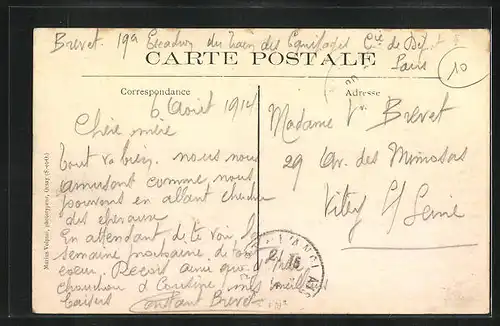 Brevet. 19e Escadron du train des Equipages Cie de Dépôt
Paris
CARTE POSTALE
10
Correspondance
Adresse
6 Août 1914
Chère mère
tout va bien. nous nous
amusant comme nous
pouvons en allant chercher
des chevaux
En attendant de te voir la
semaine prochaine de tout
coeur, Reçois ainsi que
chouchou d'Louise, mes meilleurs
baisers
Constant Brevet
Madame Vve Brevet
29 Av. des Mimosas
Vitry s/ Seine